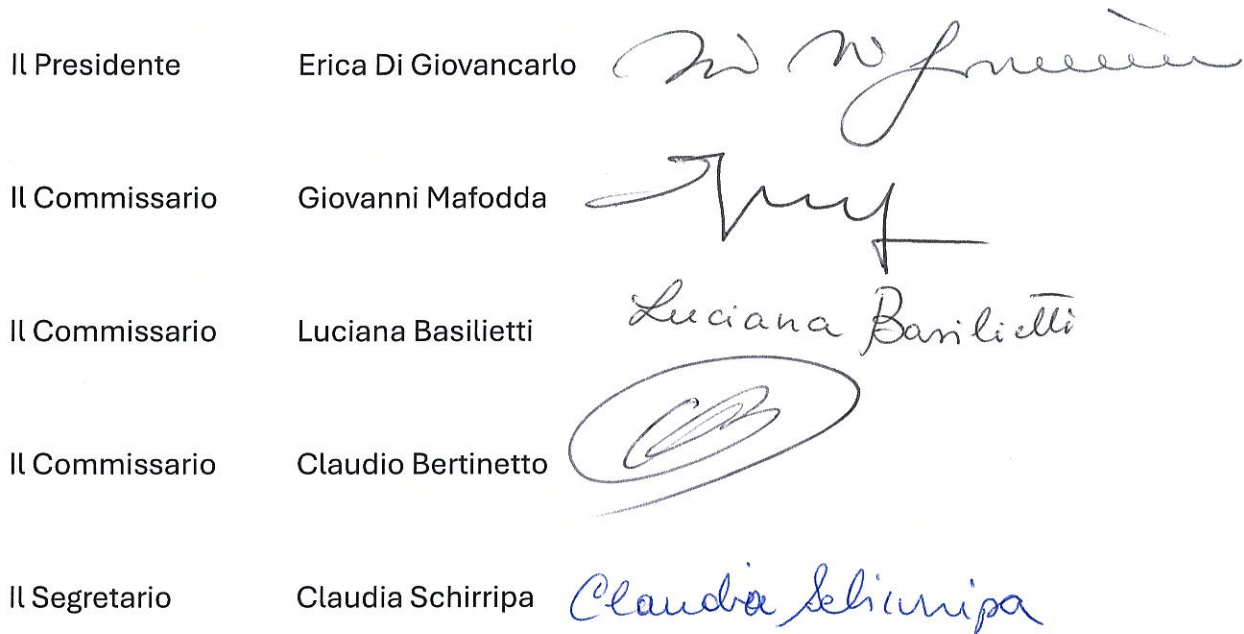 Il Presidente Erica Di Giovancarlo
Il Commissario Giovanni Mafodda
Il Commissario Luciana Basilietti Luciana Basilietti
Il Commissario Claudio Bertinetto
Il Segretario Claudia Schirripa Claudia Schirripa